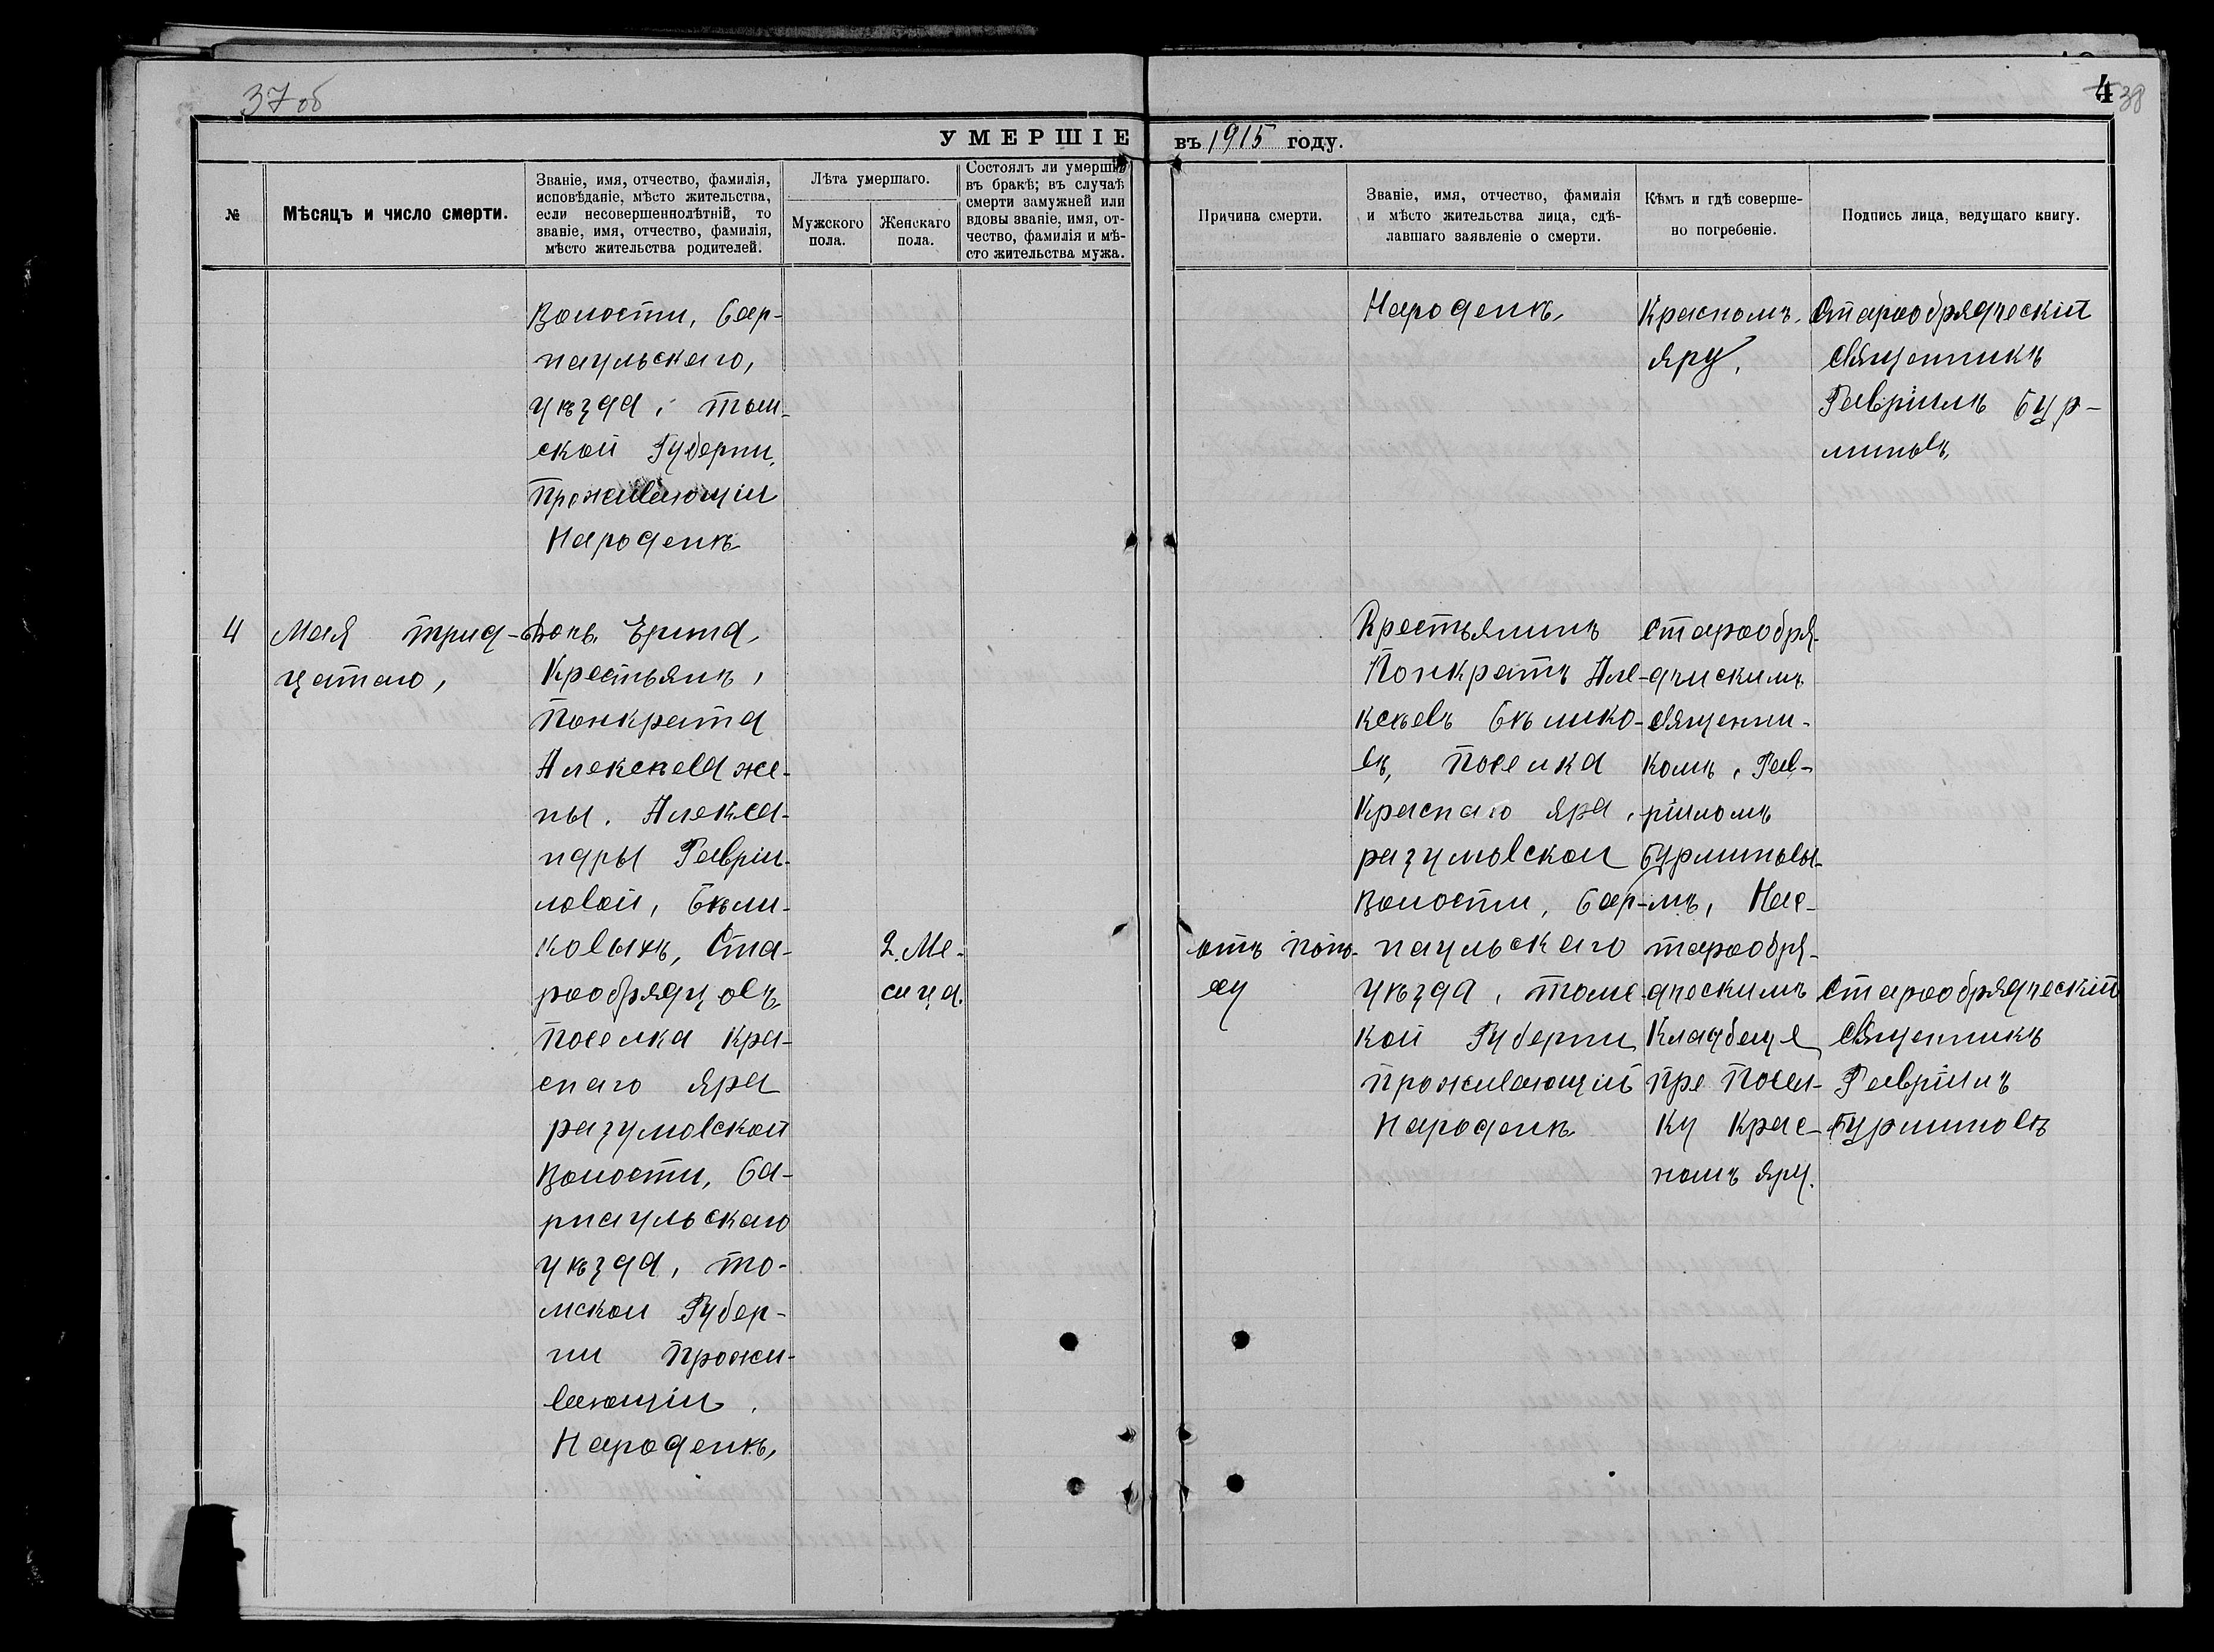 37 об
4 38
УМЕРШІЕ
въ 1915 году.
№
Мѣсяцъ и число смерти.
Званіе, имя, отчество, фамилія,
исповѣданіе, мѣсто жительства,
если несовершеннолѣтній, то
званіе, имя, отчество, фамилія,
мѣсто жительства родителей.
Лѣта умершаго.
Мужского
пола.
Женскаго
пола.
Состоялъ ли умершій
въ бракѣ; въ случаѣ
смерти замужней или
вдовы званіе, имя, от-
чество, фамилія и мѣ-
сто жительства мужа.
Причина смерти.
Званіе, имя, отчество, фамилія
и мѣсто жительства лица, сдѣ-
лавшаго заявленіе о смерти.
Кѣмъ и гдѣ соверше-
но погребеніе.
Подпись лица, ведущаго книгу.
Волости, бар-
наульскаго,
уѣзда, том-
ской Губерни,
Проживающіи
Народенѣ
Народенѣ,
Красномъ.
яру,
Старообрядческій
священникъ
Гавріилъ Бур-
миновъ,
4
Мая трид-
цатаго,
дочь
Крестьянъ,
Понкрата
Алексѣева же-
ны. Алекса-
ндры Гавріи-
ловой, бѣли-
ковыхъ, Ста-
рообрядцовъ,
Поселка Кра-
снаго Яра
разумовской
Волости, ба-
рнаульскаго
уѣзда, то-
мской Губер-
ни Прожи-
вающіи.
Народенѣ,
2. Ме-
сица.
отъ поно-
су
Крестьянинъ
Понкратъ Але-
ксѣевъ бѣлико-
въ, Поселка
Краснаго яра,
разумовской
Волости, бар-
наульскаго
уѣзда, томс-
кой Губерни
Проживающій
Народенѣ
Старообря-
дчискимъ
священни-
комъ, Гав-
ріиломъ
бурминовы-
мъ, Нас-
тарообря-
дческимъ
Кладбеще
Пре Посел-
ку Крас-
номъ яру.
Старообрядческій
священникъ
Гавріилъ
Бурминовъ